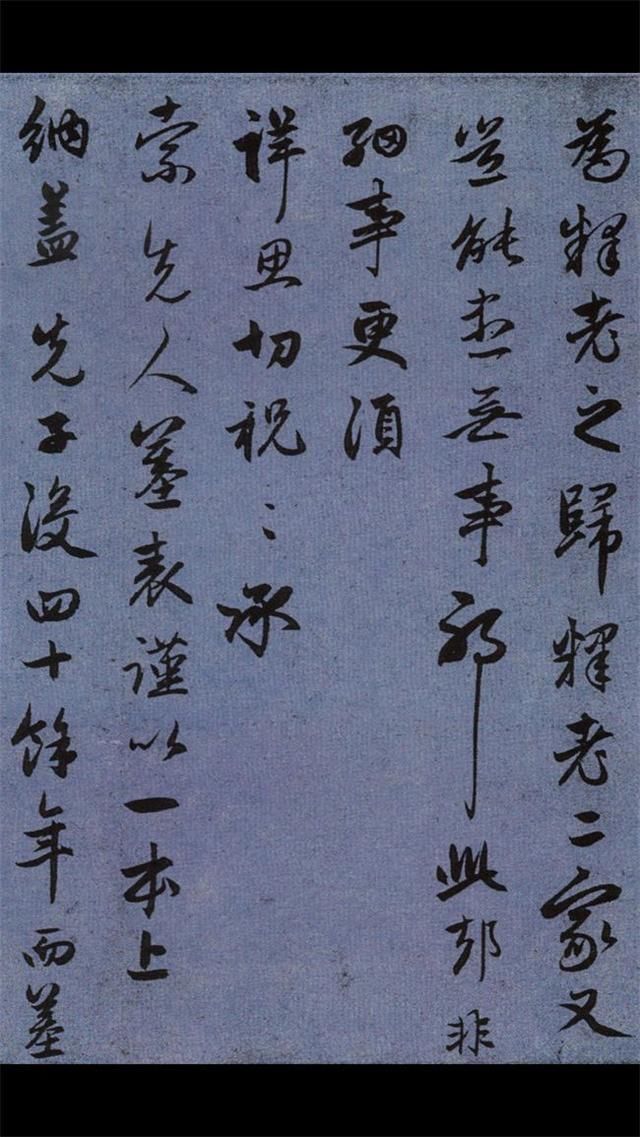 為釋老之歸釋老二家又
豈能無事耶此却非
細事更須
詳思切祝〻承
索先人墓表謹以一本上
納蓋先子沒四十餘年而墓